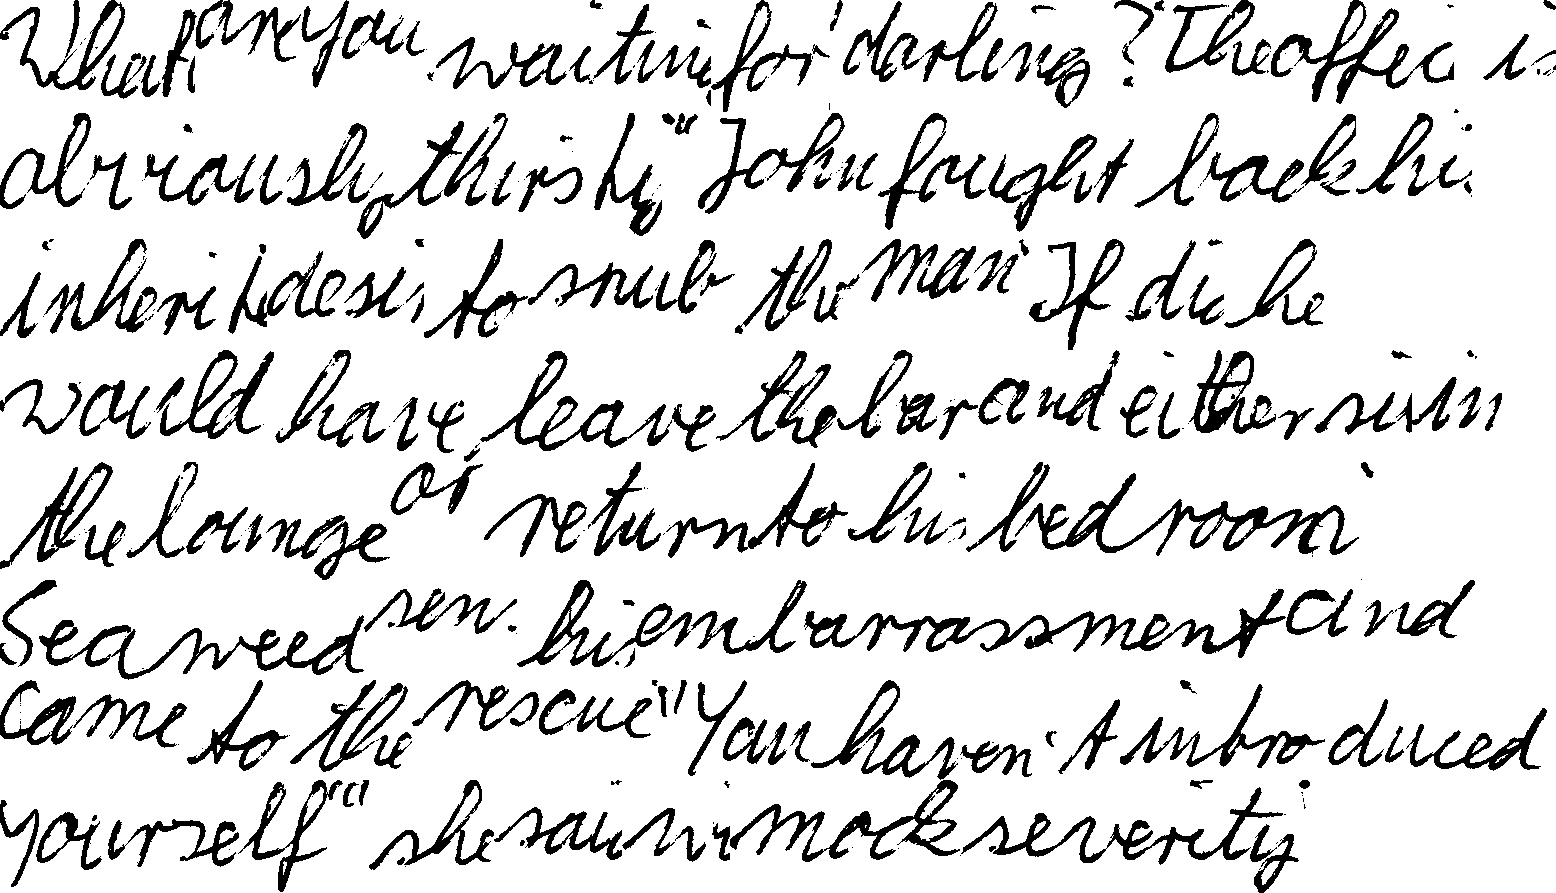 What are you waiting for darling? The officer is
obviously thirsty." John fought back his
inherited desire to snub the man. If did he
would have leave the bar and either sit in
the lounge or return to his bedroom.
Seaweed sen. his embarrassment and
came to the rescue. "You haven't introduced
yourself" she said in mock severity